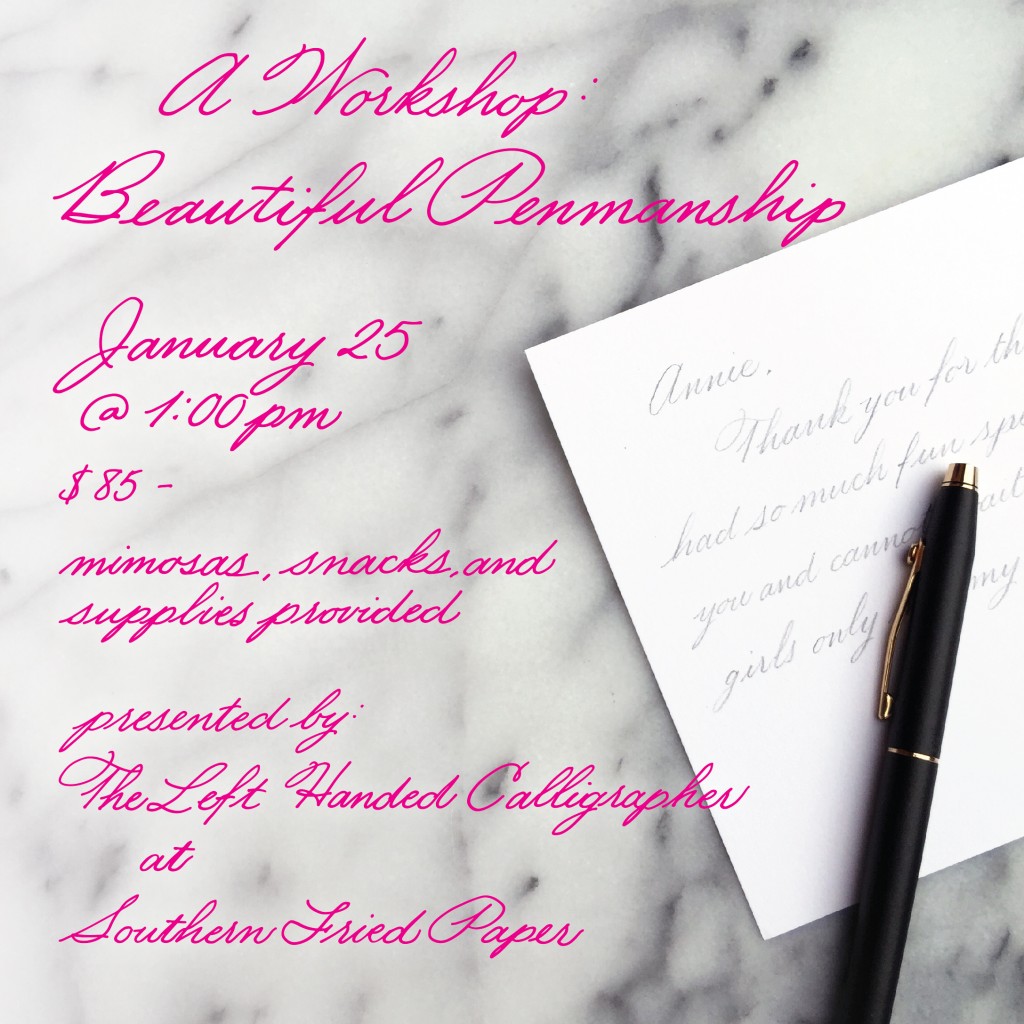 A Workshop:
Beautiful Penmanship
January 25
@ 1:00 pm
$85 -
mimosas, snacks, and
supplies provided
presented by:
The Left Handed Calligrapher
at
Southern Fried Paper
Annie,
Thank you for th
had so much fun spe
you and canno ait
girls only my